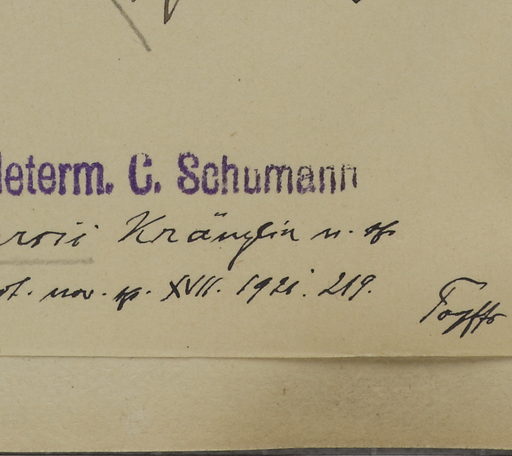 determ. C. Schumann
rsii Kränzlin n. sp.
ot. nov. sp. XVII. 1921. 219.